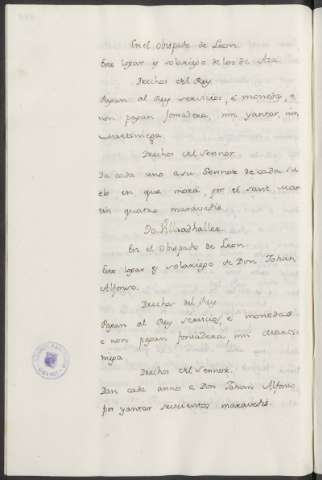 En el Obispado de Leon.
Este logar es solariego de los de Aza.
Derechos del Rey.
Pagan al Rey servicios, e moneda, e
non pagan fonsadera, nin yantar, nin
martiniega.
Derechos del Sennor.
Da cada uno a su Sennor de cada su
elo en que mora, por el Sant Mar
tin quatro maravedis.
En el Obispado de Leon.
Este logar es solariego de Don Johan
Alfonso.
Derechos del Rey
Pagan al Rey servicios, e monedas
e non pagan fonsadera, nin marti
niega
Derechos del Sennor.
Dan cada anno a Don Johan Alfonso,
por yantar maravedis.